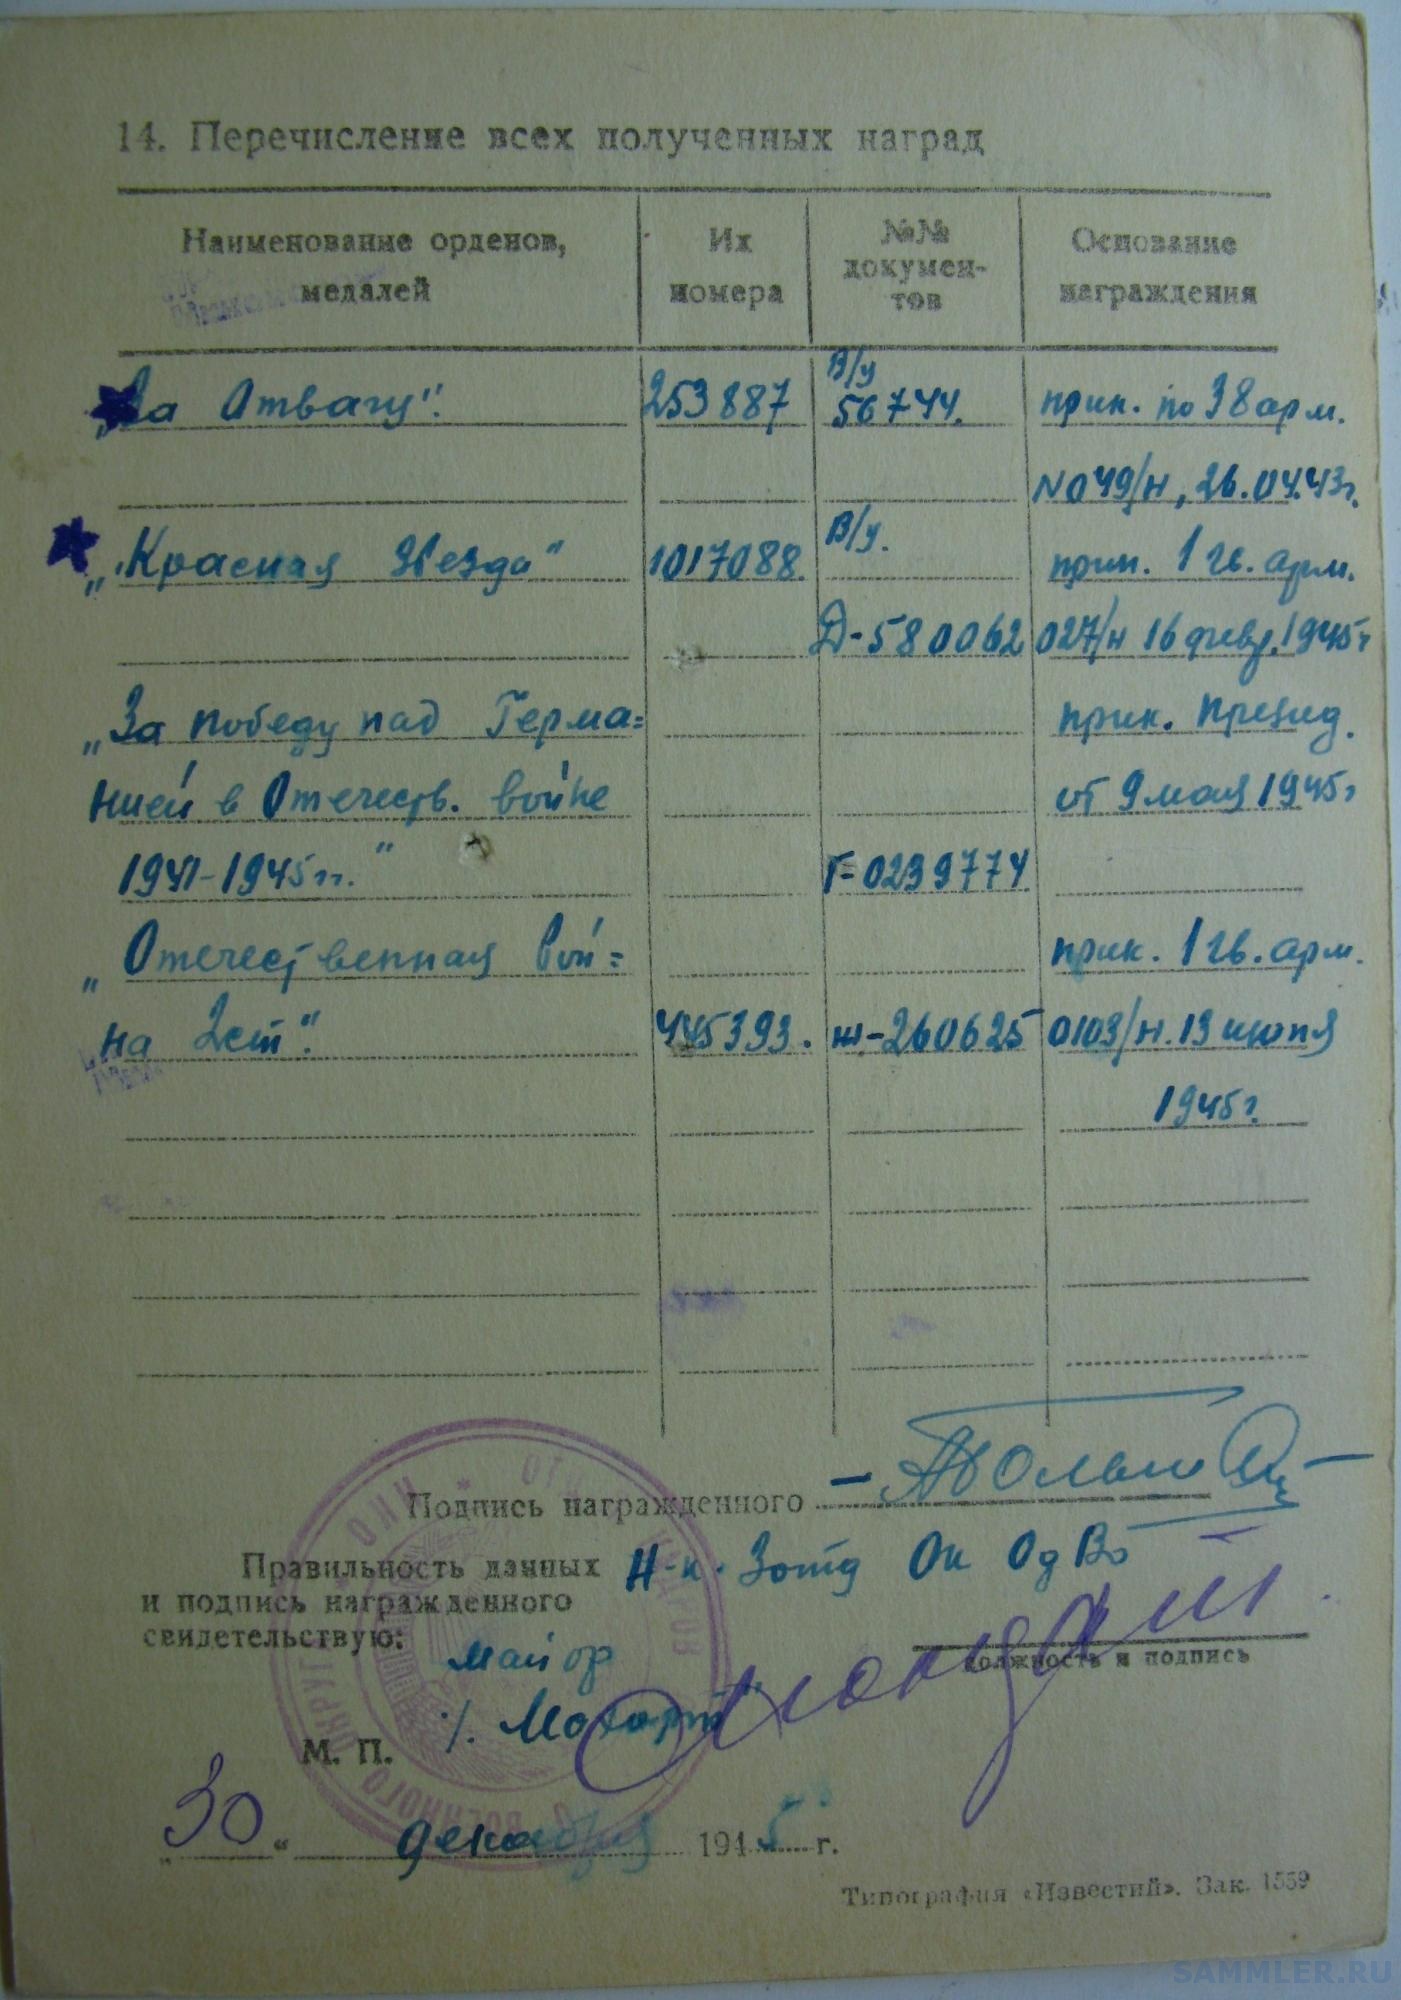 14. Перечисление всех полученных наград
Наименование орденов, медалей
Их номера
№№ докумен-тов
Основание награждения
„За Отвагу". 253887 В/у 56744. прик. по 38 арм.
№ 049/н, 26.04.43г.
„Красная Звезда" 1017088. В/у. прик. 1 гв. арм.
Д-580062 027/н 16 февр. 1945г
„За победу над Герма= прик. Презид.
нией в Отечеств. войне от 9 мая 1945г
1941-1945гг." Г=0239774
„Отечественная Вой= прик. 1 гв. арм.
на 2ст". 445393. ш-260625 0103/н. 13 июня
1945г.
Подпись награжденного
Правильность данных Н-к. Ок ОдВо
и подпись награжденного
свидетельствую:
должность и подпись
майор
М. П.
„30" декабря 1945 г.
Типография «Известий». Зак. 1559
SAMMLER.RU